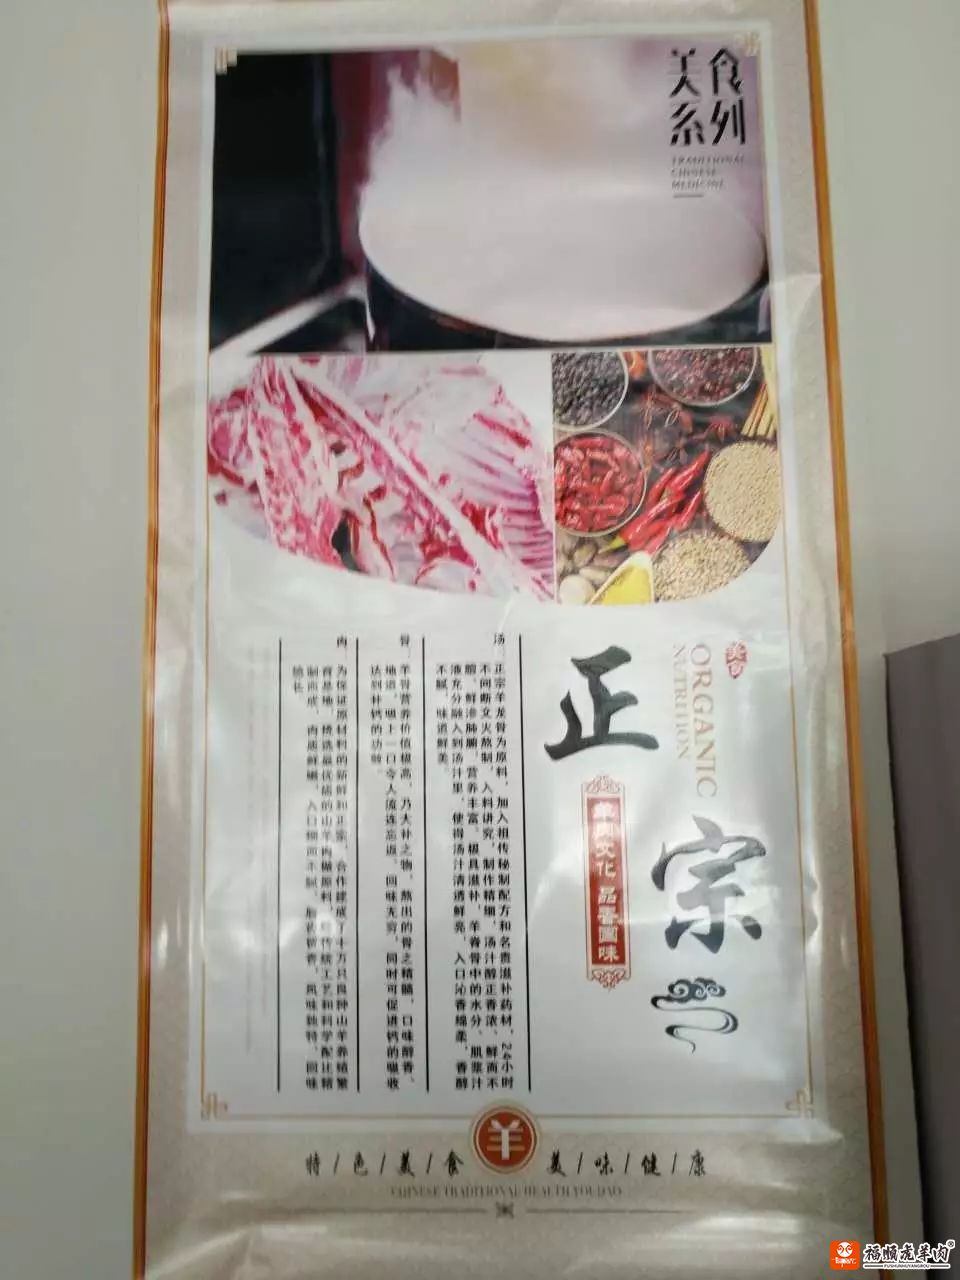 美食
系列
TRADITIONAL
CHINESE
MEDICINE
美食
ORGANIC
NUTRITION
正宗
羊肉文化 品香回味
汤：正宗羊龙骨为原料，加入祖传秘制配方和名贵滋补药材，24小时
不间断文火熬制，入料讲究，制作精细，汤汁醇正香浓，鲜而不
膻，鲜渗肺腑，营养丰富，极具滋补，羊脊骨中的水分、肌浆汁
液充分融入到汤汁里，使得汤汁清透鲜亮，入口沁香绵柔，香醇
不腻，味道鲜美。
骨：羊骨营养价值极高，乃大补之物，熬出的骨之精髓，口味醇香、
地道，咽上一口令人流连忘返，回味无穷，同时可促进钙的吸收
达到补钙的功效。
肉：为保证原材料的新鲜和正宗，合作建成了十万只良种山羊养殖繁
育基地，精选最优质的山羊肉做原料，传统工艺和科学配比精
制而成，肉质鲜嫩，入口细而不腻，脂软筋香，风味独特，回味
悠长。
羊
特/色/美/食 美/味/健/康
CHINESE TRADITIONAL HEALTH YOU DAO
福顺虎羊肉®
FUSHUNHUYANGROU